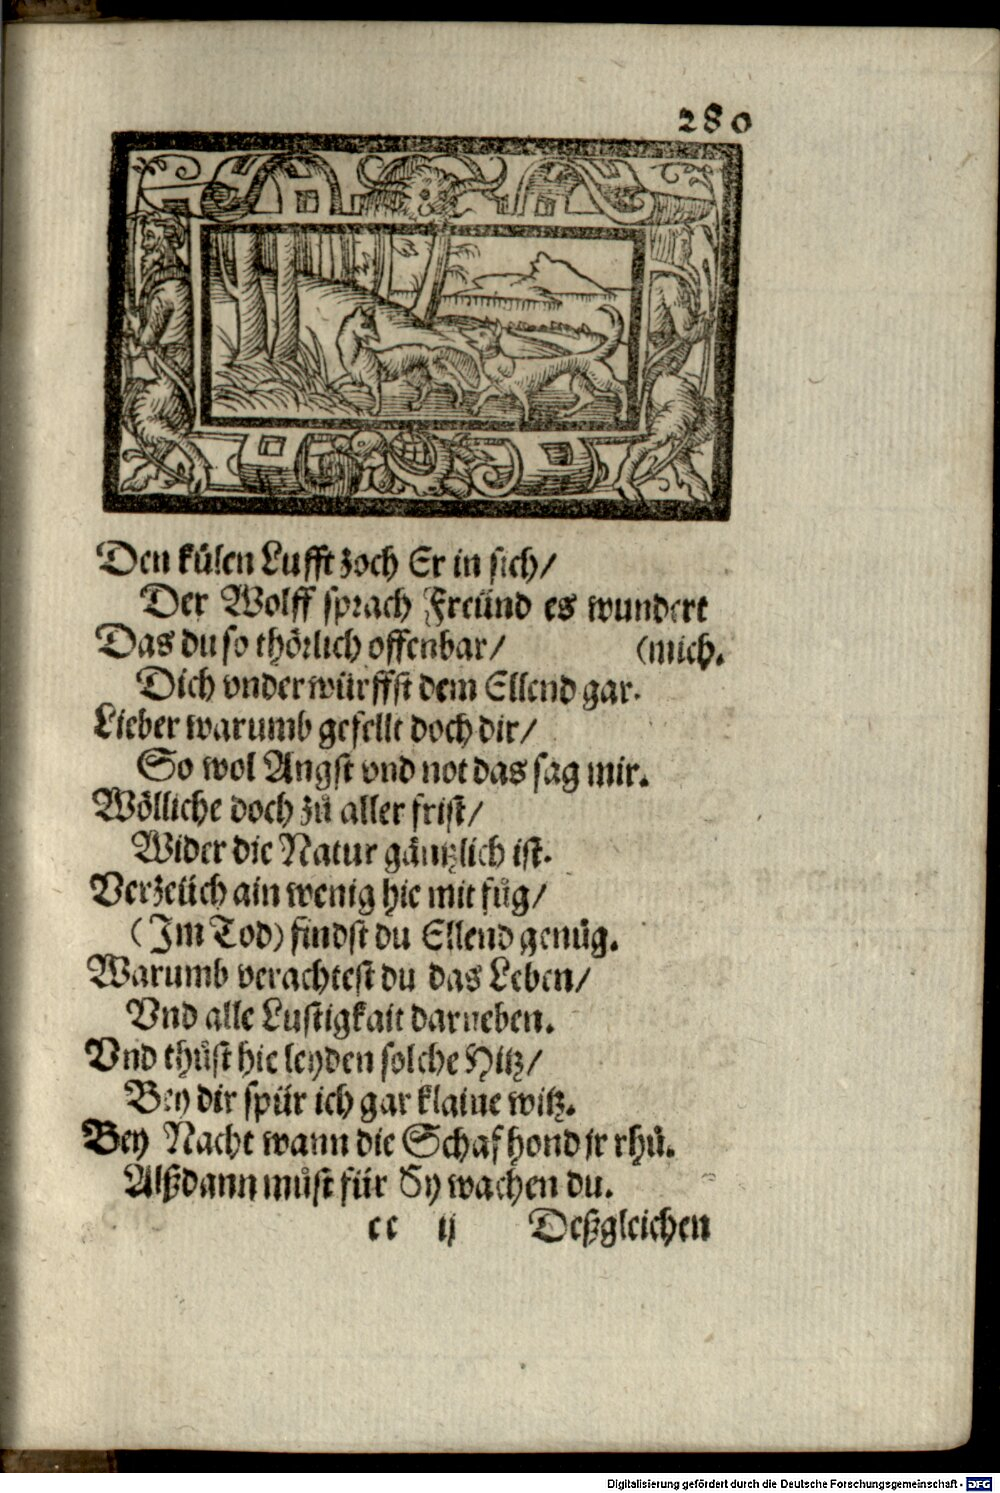 280
Den külen Lufft zoch Er in sich/
Der Wolff sprach Freünd es wundert
Das du so thörlich offenbar/ (mich.
Dich vnderwürffst dem Ellend gar.
Lieber warumb gefellt doch dir/
So wol Angst vnd not das sag mir.
Wölliche doch zů aller frist/
Wider die Natur gäntzlich ist.
Verzeüch ain wenig hie mit fůg/
(Im Tod) findst du Ellend genůg.
Warumb verachtest du das Leben/
Vnd alle Lustigkait darneben.
Vnd thůst hie leyden solche Hitz/
Bey dir spür ich gar klaine witz.
Bey Nacht wann die Schaf hond jr rhů.
Alßdann můst für Sy wachen du.
cc ij Deßgleichen
Digitalisierung gefördert durch die Deutsche Forschungsgemeinschaft - DFG